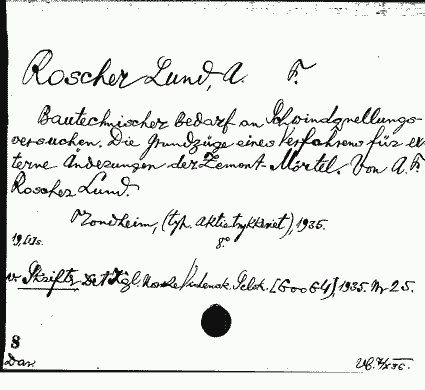 Roscher Lund, A. F.
Bautechnischer bedarf an Schwindquellungs-
versuchen. Die Grundzüge eines Verfahrens für ex-
terne Änderungen der Zement-Mörtel. Von A. F.
Roscher Lund.
Trondheim, (tr. Aktietrykkeriet), 1935.
19 s. 8°
v. Skrifter. Det Kgl. Norske Vidensk. Selsk. 1935. Nr 25.
8
Dav.